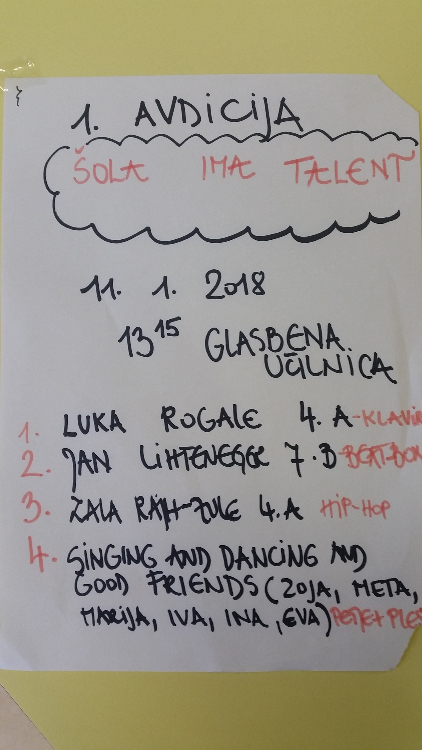 1. AVDICIJA
ŠOLA IMA TALENT
11. 1. 2018
13 15 GLASBENA
UČILNICA
1. LUKA ROGALE 4. A-KLAVIR
2. JAN LIHTENEGGE 7. B-BEAT-BOX
3. ZALA RAJH-ZULE 4. A HIP-HOP
4. SINGING AND DANCING AND
GOOD FRIENDS (ZOJA, META,
MARIJA, IVA, INA, EVA) PETJE+PLES